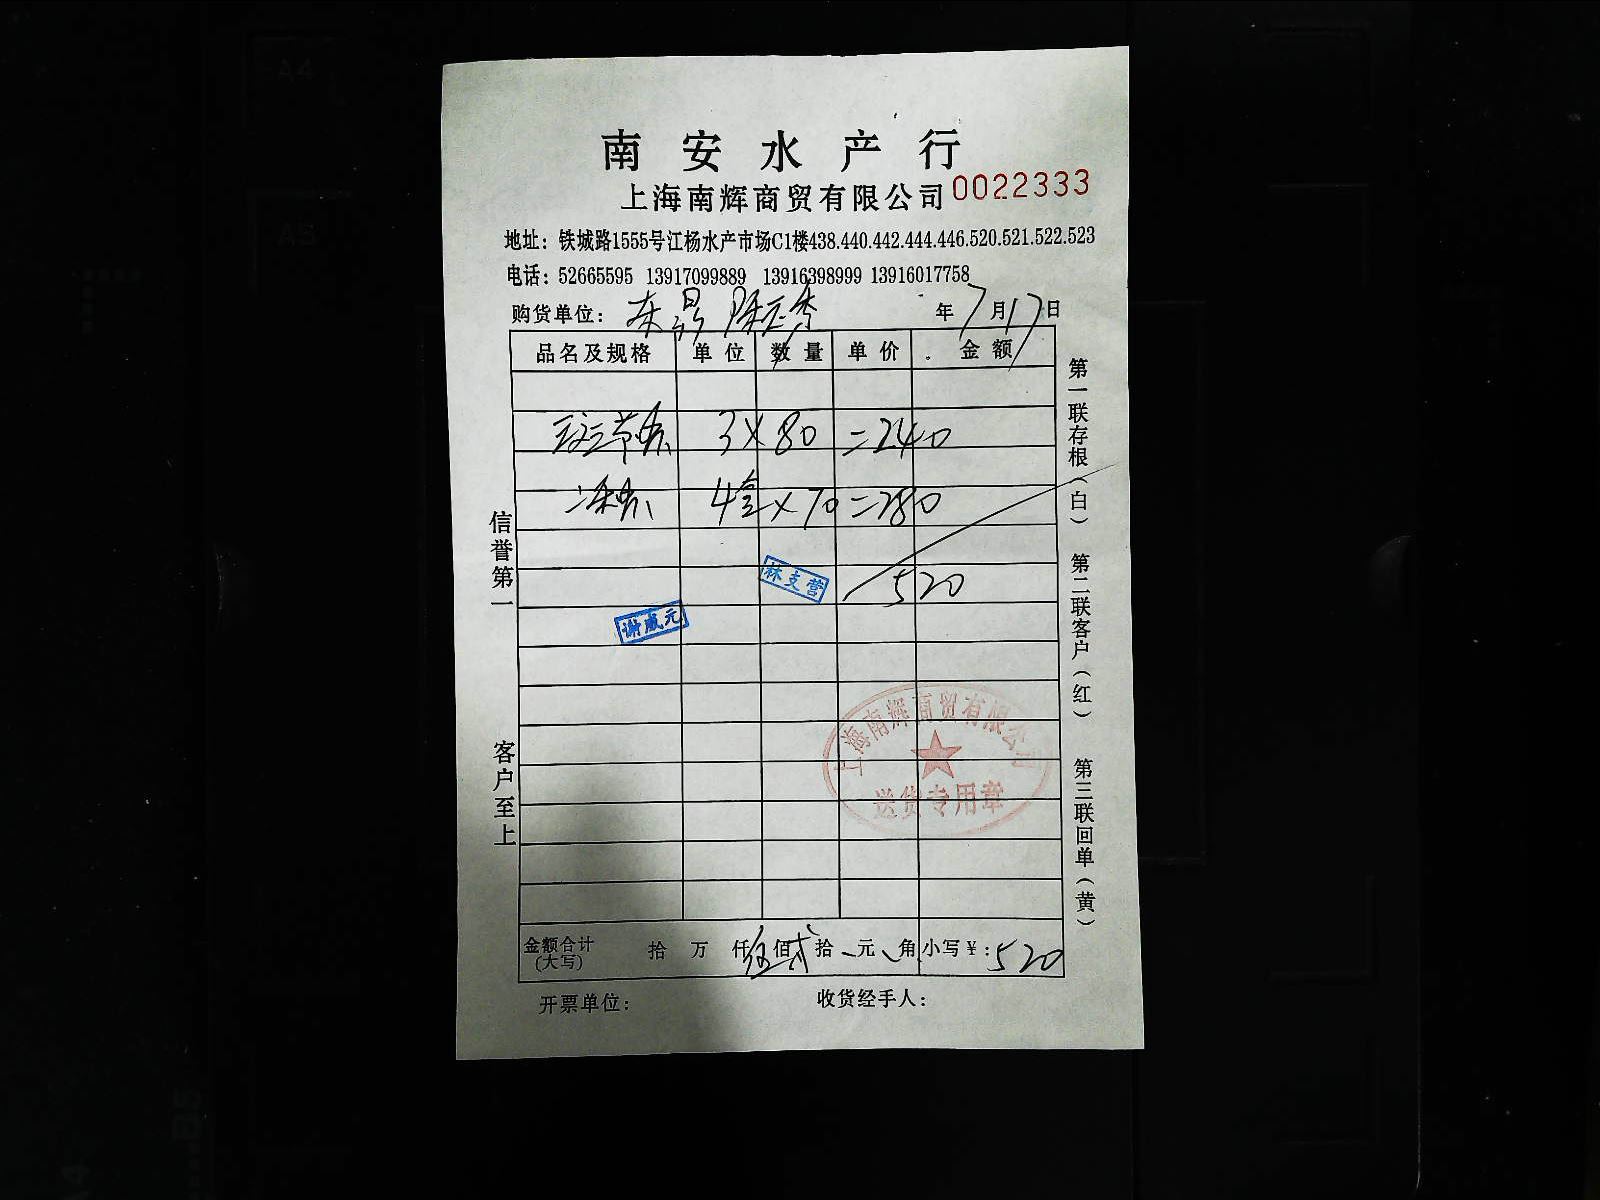 南安水产行
上海南辉商贸有限公司 0022333
地址：铁城路1555号江杨水产市场C1楼438.440.442.444.446.520.521.522.523
电话：52665595 13917099889 13916398999 13916017758
购货单位： 年7月17日
品名及规格 单位 数量 单价 金额
3×80=240
冻虾 4盒×70=280
520
林支营
谢咸元
上海南辉商贸有限公司
送货专用章
金额合计(大写) 拾 万 仟伍佰贰拾、元、角 小写￥：520
开票单位： 收货经手人：
信誉第一
客户至上
第一联存根（白）
第二联客户（红）
第三联回单（黄）
A4
A5
B5